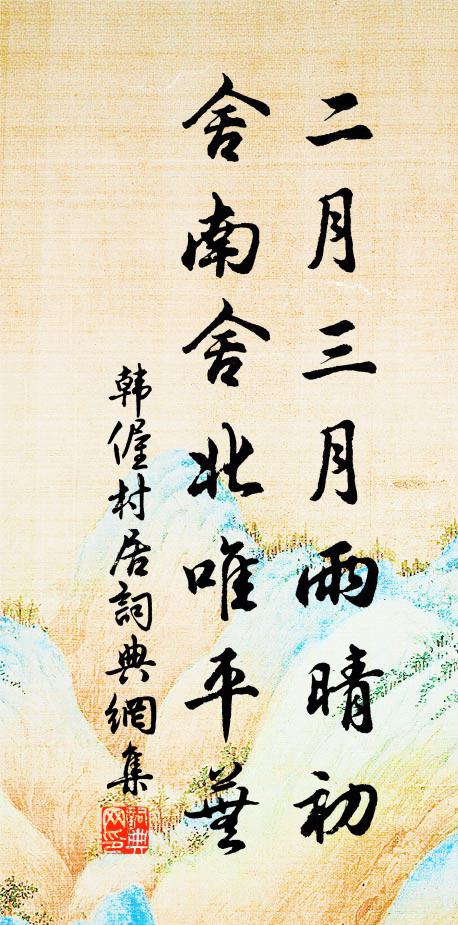 二月三月雨晴初
舍南舍北唯平蕪
韩偓村居詞典網集
詞典